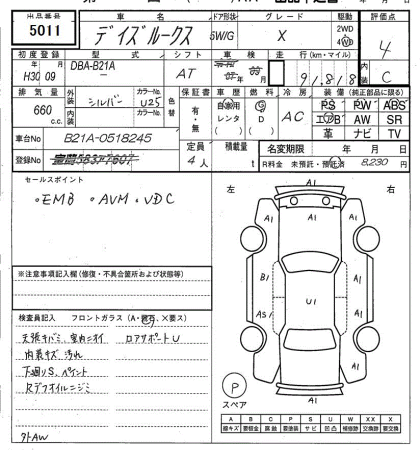 出品番号 車名 ドア形状 グレード 駆動 評価点
5011 デイズルークス 5W/G X 2WD 4WD 4
初度登録 型式 シフト 車検 走行(km・マイル) 内装
H30 年 09 月 DBA-B21A - AT 年 月 91,818 C
排気量 外装 シルバー カラーNo. U25 色替 保証書 車歴 燃料 冷房 装備(純正部品に限る)
660 c.c. 内装 カラーNo. 有・無 自家用 レンタ G D AC PS PW ABS
エアB AW SR
革 ナビ TV
車台No B21A-0518245 定員 4人 積載量 t 名変期限 年 月 日
登録No R料金 未預託・預託済 8,230 円
セールスポイント
・EMB ・AVM ・VDC
左 右
※注意事項記入欄(修復・不具合箇所および状態等)
検査員記入 フロントガラス(A・飛石、X要ス)
天張キバミ、室内ニオイ ロアサポートU
内装キズ、汚れ
下廻りS、ペイント
Rデフオイルニジミ
社外AW
A1
A1 A1
A1
B1 A1
U1
AS1 A1
A1
P
スペア
A B C P S U W X XX
線キズ 要板金 腐蝕 要塗装 サビ 凹凸 補修跡 要交換 交換済